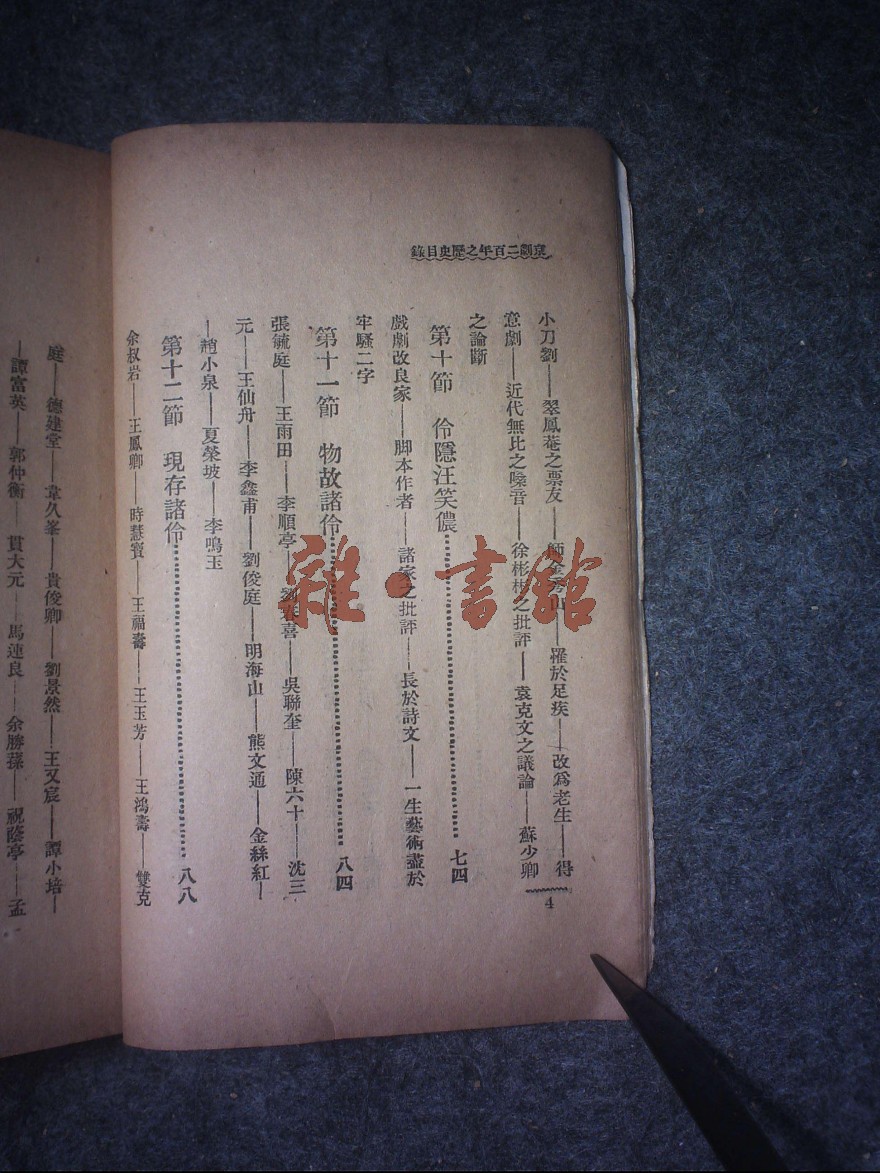 京劇二百年之歷史目錄
小刀劉——翠鳳菴之票友——師金秀山——羅於足疾——改爲老生——得
意劇——近代無比之嗓音——徐彬彬之批評——袁克文之議論——蘇少卿
之論斷
第十節 伶隱汪笑儂⋯⋯七四
戲劇改良家——脚本作者——諸家之批評——長於詩文——一生藝術盡於
牢騷二字
第十一節 物故諸伶⋯⋯八四
張毓庭——王雨田——李順亭——劉春喜——吳聯奎——陳六十——沈三
元——王仙舟——李鑫甫——劉俊庭——明海山——熊文通——金絲紅—
—趙小泉——夏榮坡——李鳴玉
第十二節 現存諸伶⋯⋯八八
余叔岩——王鳳卿——時慧寶——王福壽——王玉芳——王鴻壽——雙克
4
庭——德建堂——韋久峯——貴俊卿——劉景然——王又宸——譚小培—
—譚富英——郭仲衡——貫大元——馬連良——余勝蓀——祝蔭亭——孟
雜·書館